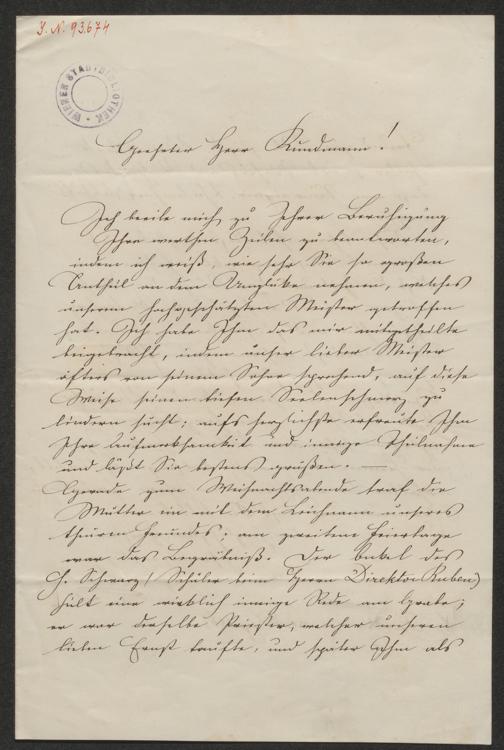 J. N. 93.674
WIENER STADTBIBLIOTHEK
Geehrter Herr Kundmann!
Ich beeile mich zu Ihrer Beruhigung
Ihre werthen Zeilen zu beantworten,
indem ich weiß, wie sehr Sie so großen
Antheil an dem Unglüke nehmen, welches
unseren hochgeschätzten Meister getroffen
hat. Ich habe Ihm das mir mitgetheilte
beigebracht, indem unser lieber Meister
öfters von seinem Sohne sprechend, auf diese
Weise seinen tiefen Seelenschmerz zu
lindern sucht; aufs herzlichste erfreute Ihm
Ihre Aufmerksamkeit und innige Theilnahme
und läßt Sie bestens grüßen. —
Gerade zum Weihnachtsabende traf die
Mutter ein mit dem Leichnam unseres
theuren Freundes; am zweiten Feiertage
war das Begräbniß. Der Onkel des
H. Schwarz (Schüler beim Herrn Direktor Ruben)
hielt eine wirklich innige Rede am Grabe;
er war derselbe Priester, welcher unseren
lieben Ernst taufte, und später Ihm als